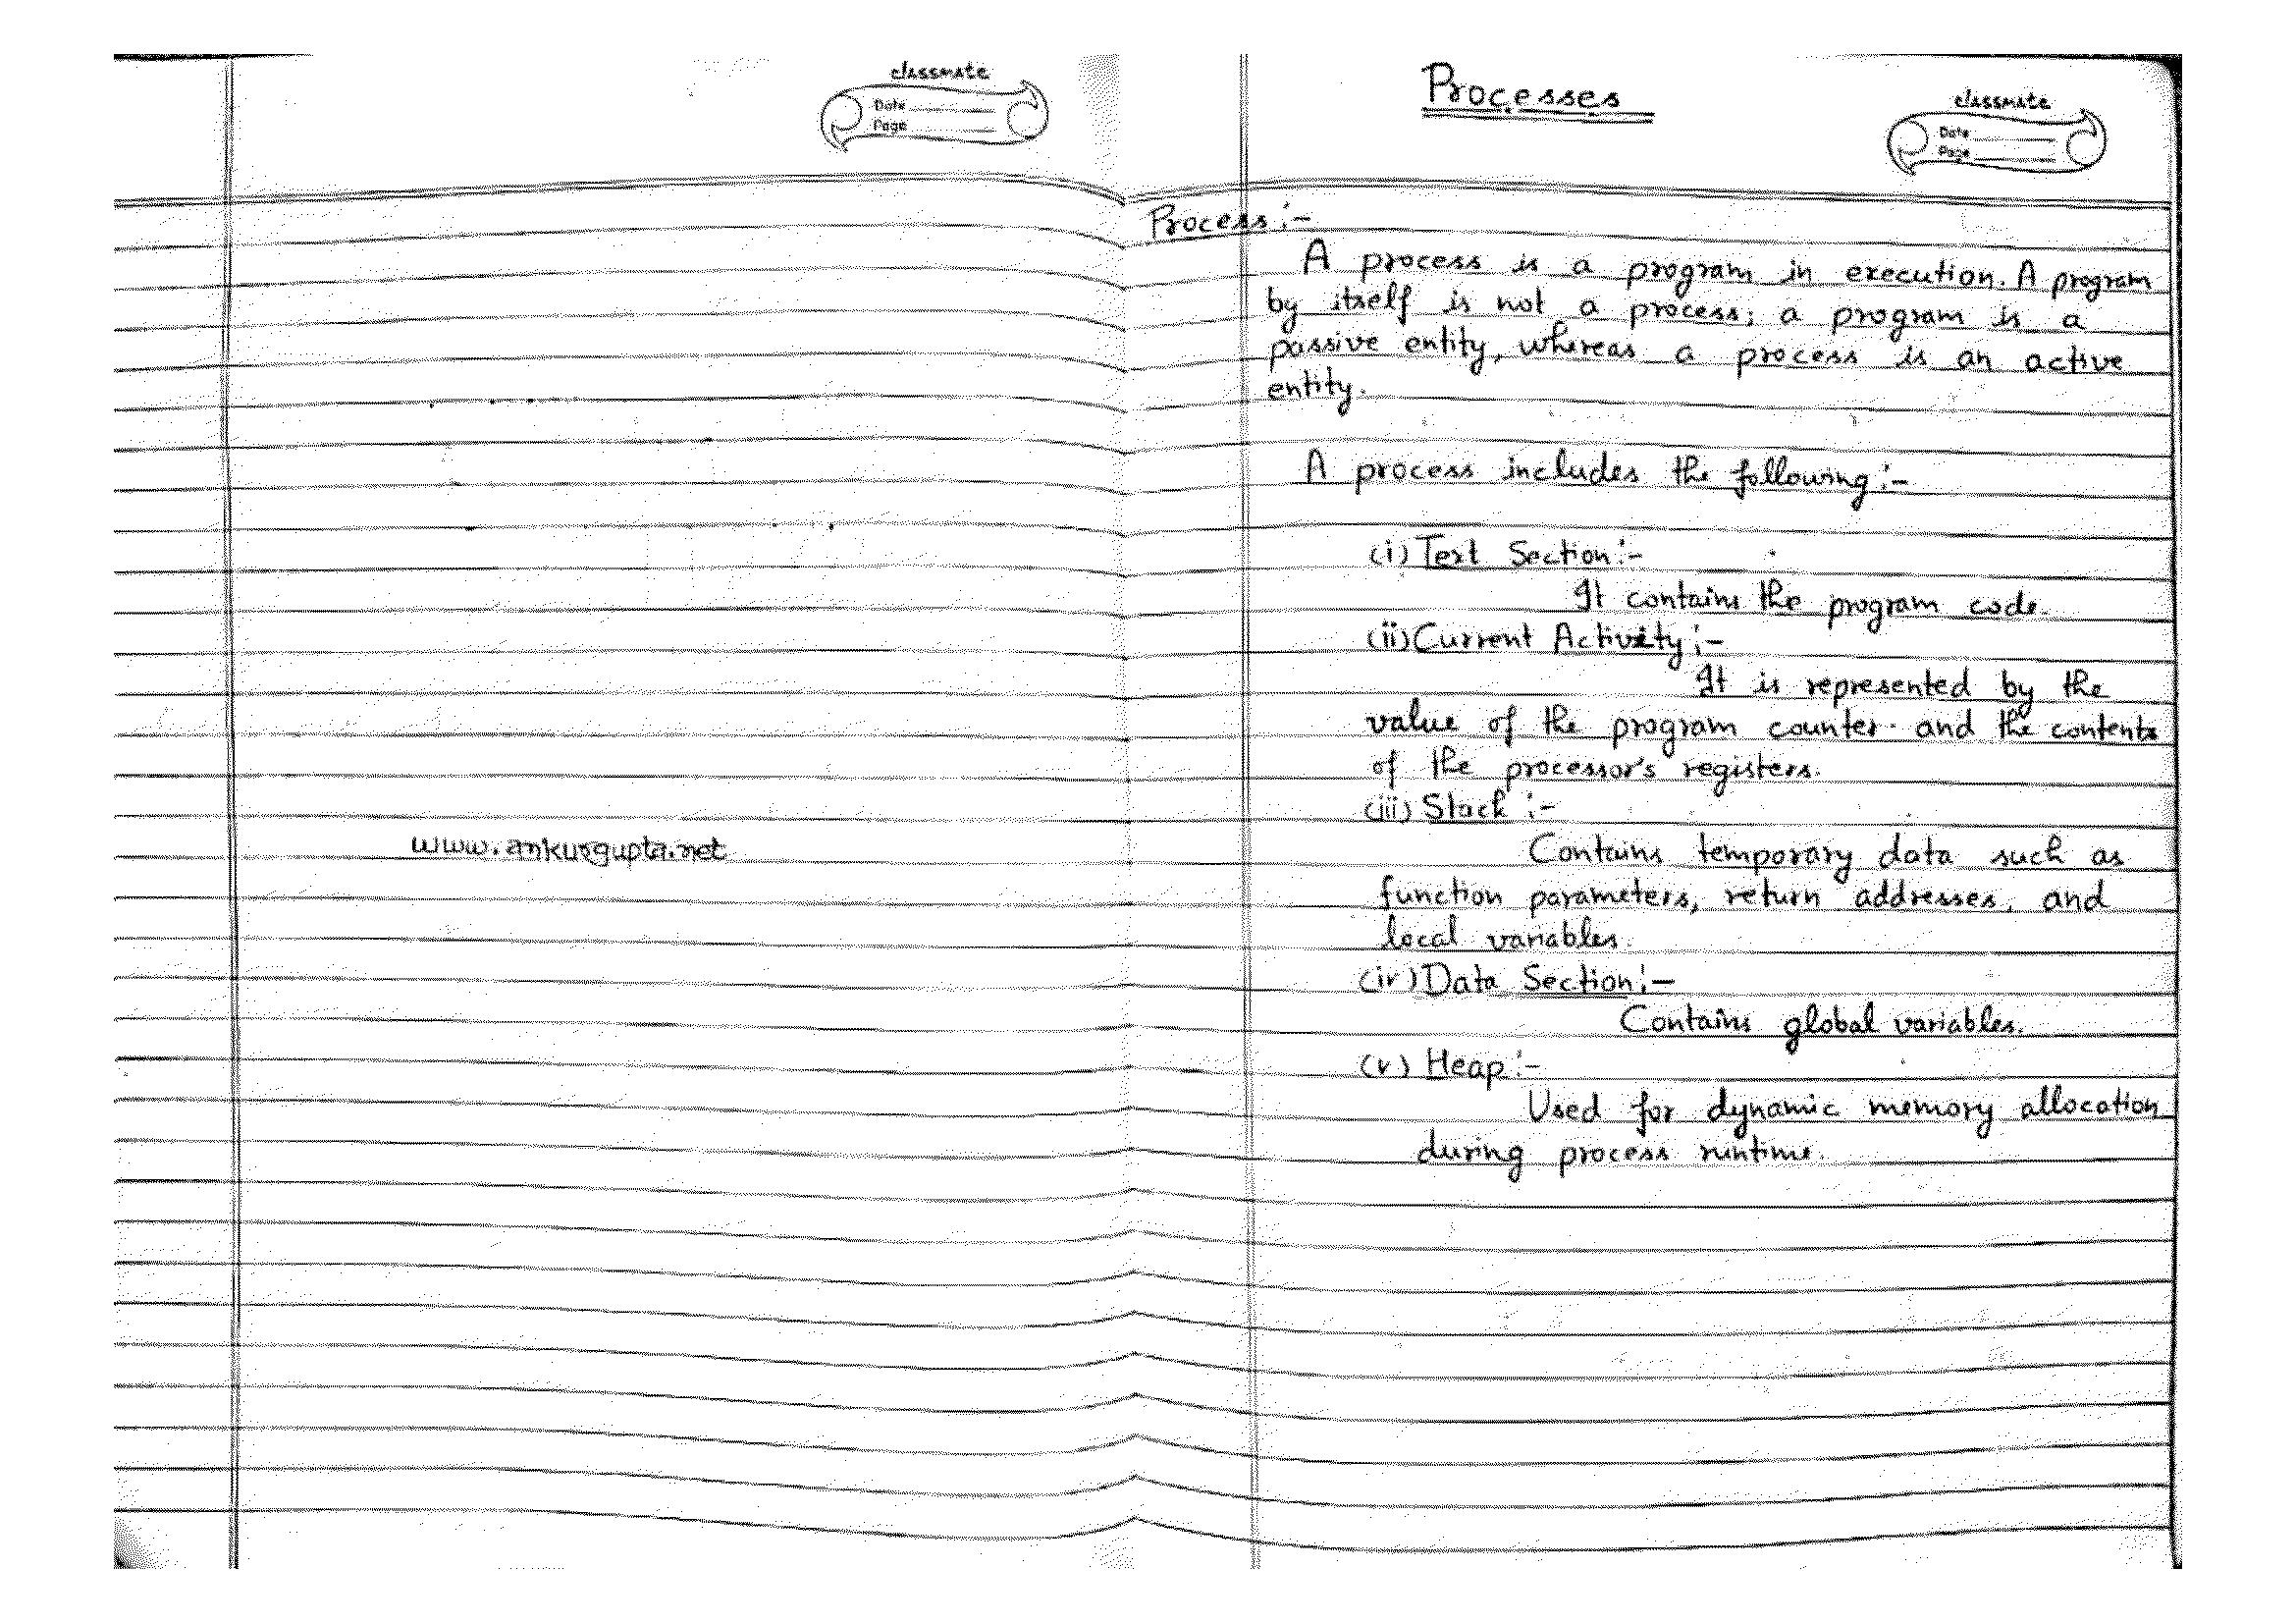 classmate
Date
Page
www.ankurgupta.net
Processes
classmate
Date
Page
Process :-
A process is a program in execution. A program
by itself is not a process; a program is a
passive entity, whereas a process is an active
entity.
A process includes the following :-
(i) Text Section :-
It contains the program code.
(ii) Current Activity :-
It is represented by the
value of the program counter and the contents
of the processor's registers.
(iii) Stack :-
Contains temporary data such as
function parameters, return addresses, and
local variables.
(iv) Data Section :-
Contains global variables.
(v) Heap :-
Used for dynamic memory allocation
during process runtime.